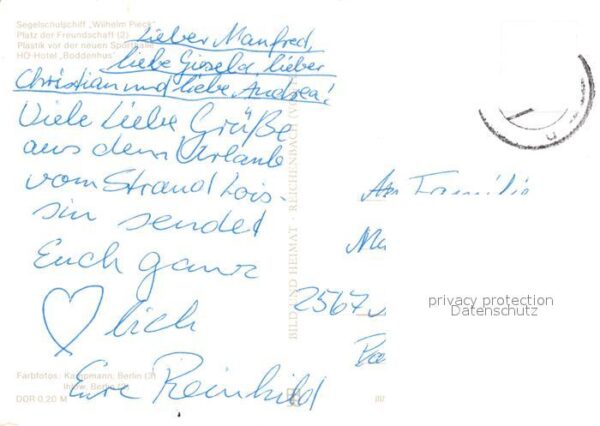 Segelschulschiff „Wilhelm Pieck"
Platz der Freundschaft (2)
Plastik vor der neuen Sporthalle
HO-Hotel „Boddenhus"
Lieber Manfred,
liebe Gisela, lieber
Christian und liebe Andrea!
Viele liebe Grüße
aus dem Urlaub
vom Strand Lois-
sin sendet
Euch ganz
♡ lich
Eure Reinhild
BILD UND HEIMAT REICHENBACH
An Familie
2567
privacy protection
Datenschutz
Farbfotos: Kampmann, Berlin (3)
Berlin (2)
DDR 0,20 M